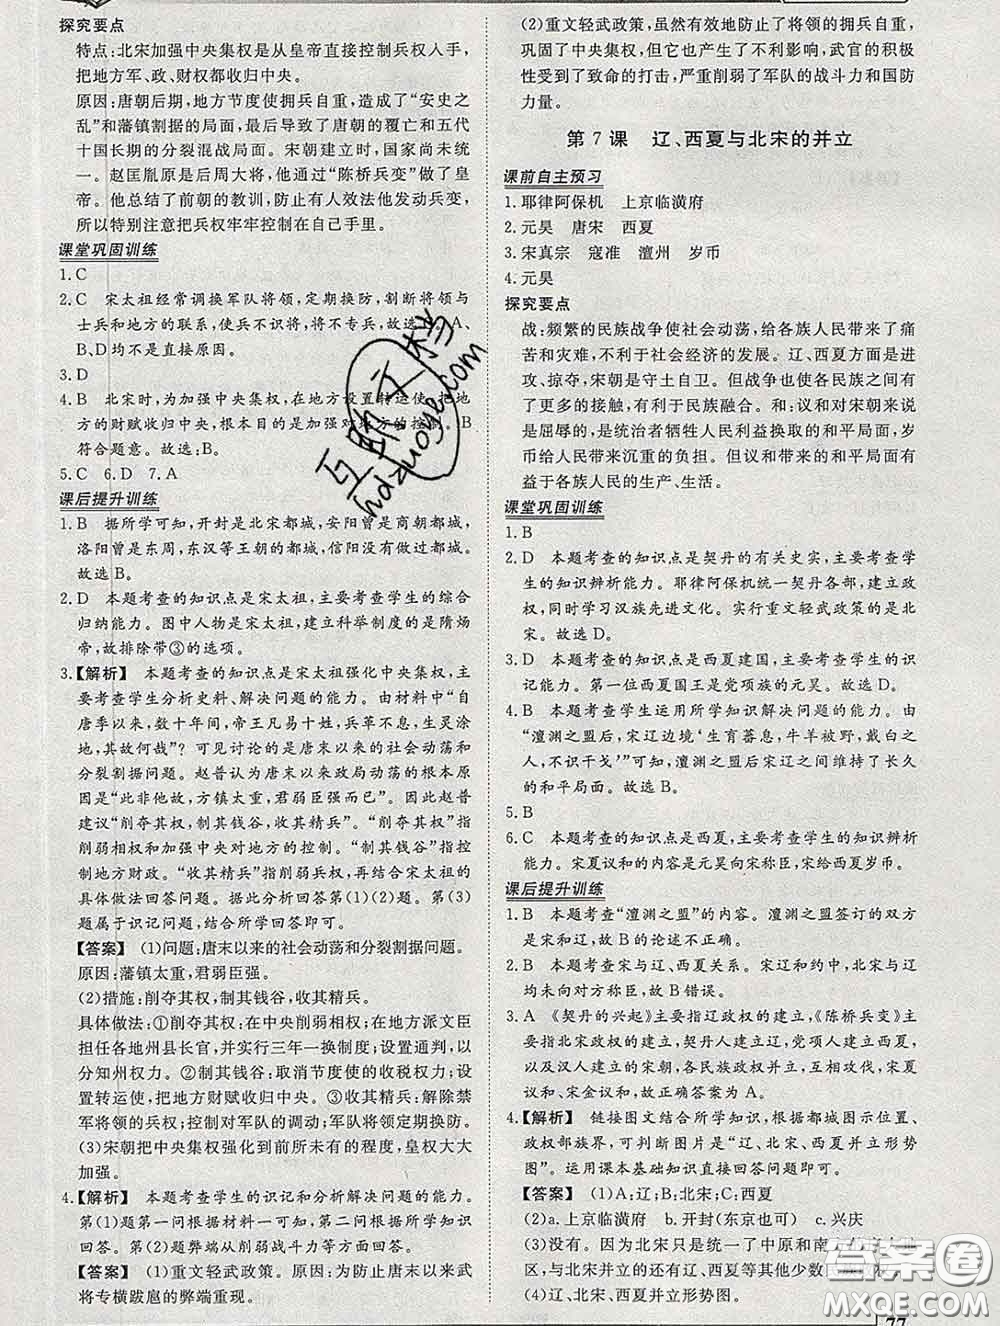 探究要点
特点:北宋加强中央集权是从皇帝直接控制兵权入手,
把地方军、政、财权都收归中央。
原因:唐朝后期,地方节度使拥兵自重,造成了“安史之
乱”和藩镇割据的局面,最后导致了唐朝的覆亡和五代
十国长期的分裂混战局面。宋朝建立时,国家尚未统
一。赵匡胤原是后周大将,他通过“陈桥兵变”做了皇
帝。他总结了前朝的教训,防止有人效法他发动兵变,
所以特别注意把兵权牢牢控制在自己手里。
课堂巩固训练
1.C
2.C 宋太祖经常调换军队将领,定期换防,割断将领与
士兵和地方的联系,使兵不识将,将不专兵,故选C。A、
B、D均不是直接原因。
3.D
4.B 北宋时,为加强中央集权,在地方设置转运使,把地
方的财赋收归中央,根本目的是加强对地方的控制。B
符合题意。故选:B。
5.C 6.D 7.A
课后提升训练
1.B 据所学可知,开封是北宋都城,安阳曾是商朝都城,
洛阳曾是东周,东汉等王朝的都城,信阳没有做过都城。
故选B。
2.D 本题考查的知识点是宋太祖,主要考查学生的综合
归纳能力。图中人物是宋太祖,建立科举制度的是隋炀
帝,故排除带③的选项。
3.【解析】 本题考查的知识点是宋太祖强化中央集权,主
要考查学生分析史料、解决问题的能力。由材料中“自
唐季以来,数十年间,帝王凡易十姓,兵革不息,生灵涂
地,其故何哉”? 可见讨论的是唐末以来的社会动荡和
分裂割据问题。赵普认为唐末以来政局动荡的根本原
因是“此非他故,方镇太重,君弱臣强而已”。因此赵普
建议“削夺其权,制其钱谷,收其精兵”。“削夺其权”指
削弱相权和加强中央对地方的控制。“制其钱谷”指控
制地方财政。“收其精兵”指控制兵权,再结合宋太祖的
具体做法回答问题。据此分析回答第(1)(2)题。第(3)
题属于识记问题,结合所学回答即可。
【答案】 (1)问题:唐末以来的社会动荡和分裂割据问题。
原因:藩镇太重,君弱臣强。
(2)措施:削夺其权,制其钱谷,收其精兵。
具体做法:①削夺其权:在中央削弱相权;在地方派文臣
担任各地州县长官,并实行三年一换制度;设置通判,以
分知州权力。②制其钱谷:取消节度使的收税权力;设
置转运使,把地方财赋收归中央。③收其精兵:解除禁
军将领的兵权;控制对军队的调动;军队将领定期换防。
(3)宋朝把中央集权强化到前所未有的程度,皇权大大
加强。
4.【解析】 本题考查学生的识记和分析解决问题的能力。
第(1)题第一问根据材料一可知,第二问根据所学知识
回答。第(2)题弊端从削弱战斗力等方面回答。
【答案】 (1)重文轻武政策。原因:为防止唐末以来武
将专横跋扈的弊端重现。
(2)重文轻武政策,虽然有效地防止了将领的拥兵自重,
巩固了中央集权,但它也产生了不利影响,武官的积极
性受到了致命的打击,严重削弱了军队的战斗力和国防
力量。
第7课 辽、西夏与北宋的并立
课前自主预习
1.耶律阿保机 上京临潢府
2.元昊 唐宋 西夏
3.宋真宗 寇准 澶州 岁币
4.元昊
探究要点
战:频繁的民族战争使社会动荡,给各族人民带来了痛
苦和灾难,不利于社会经济的发展。辽、西夏方面是进
攻、掠夺,宋朝是守土自卫。但战争也使各族人民之间
有了更多的接触,有利于民族融合。和:议和对宋朝来说
是屈辱的,是统治者牺牲人民利益换取的和平局面,岁
币给人民带来沉重的负担。但议和带来的和平局面有
益于各族人民的生产、生活。
课堂巩固训练
1.B
2.D 本题考查的知识点是契丹的有关史实,主要考查学
生的知识辨析能力。耶律阿保机统一契丹各部,建立政
权,同时学习汉族先进文化。实行重文轻武政策的是北
宋。故选D。
3.D 本题考查的知识点是西夏建国,主要考查学生的识
记能力。第一位西夏国王是党项族的元昊。故选D。
4.B 本题考查学生运用所学知识解决问题的能力。由
“澶渊之盟后,宋辽边境‘生育蕃息,牛羊被野,戴白之
人,不识干戈’”可知,澶渊之盟后宋辽之间维持了长久
的和平局面。故选B。
5.B
6.C 本题考查的知识点是西夏,主要考查学生的知识辨析
能力。宋夏议和的内容是元昊向宋称臣,宋给西夏岁币。
课后提升训练
1.B 本题考查“澶渊之盟”的内容。澶渊之盟签订的双方
是宋和辽,故B的论述不正确。
2.B 本题考查宋与辽、西夏关系。宋辽和约中,北宋与辽
均未向对方称臣,故B错误。
3.A 《契丹的兴起》主要指辽政权的建立,《陈桥兵变》主要
指北宋政权的建立,契丹人建立辽,党项人建立西夏,
以及汉人建立的北宋,各民族政权并立,互相攻伐,宋夏
议和、宋金议和,故正确答案为A。
4.【解析】 链接图文结合所学知识,根据都城图示位置、
政权部族界,可判断图片是“辽、北宋、西夏并立形势
图”。运用课本基础知识直接回答问题即可。
【答案】 (1)A:辽;B:北宋;C:西夏
(2)a.上京临潢府 b.开封(东京也可) c.兴庆
(3)没有。因为北宋只是统一了中原和南
区,与北宋并立的还有辽、西夏等其他
(4)辽、北宋、西夏并立形势图。
互助文档
hdzuoye.com
答案圈
MXQE.COM
77